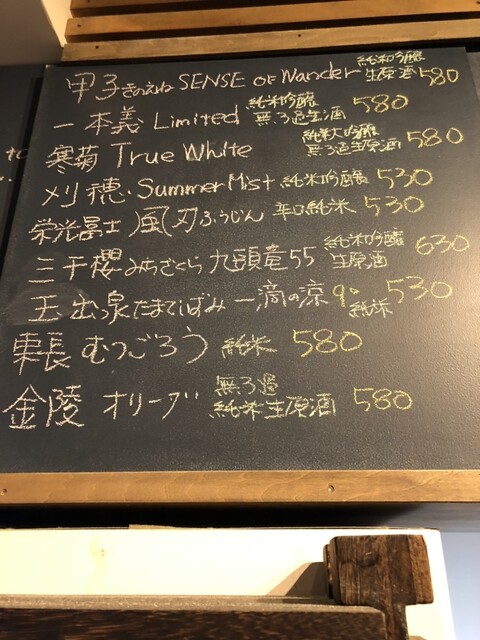 甲子きのえね SENSE OF Wander 純米吟醸 生原酒 580
一本義 Limited 純米吟醸 無ろ過生酒 580
寒菊 True White 純米大吟醸 無ろ過生原酒 580
刈穂 Summer Mist 純米吟醸 530
栄光冨士 風刃ふうじん 辛口純米 530
三千櫻みちざくら 九頭竜55 純米吟醸 生原酒 630
玉出泉たまでいずみ 一滴の涼 9° 純米 530
東長 むつごろう 純米 580
金陵 オリーブ 無ろ過 純米生原酒 580